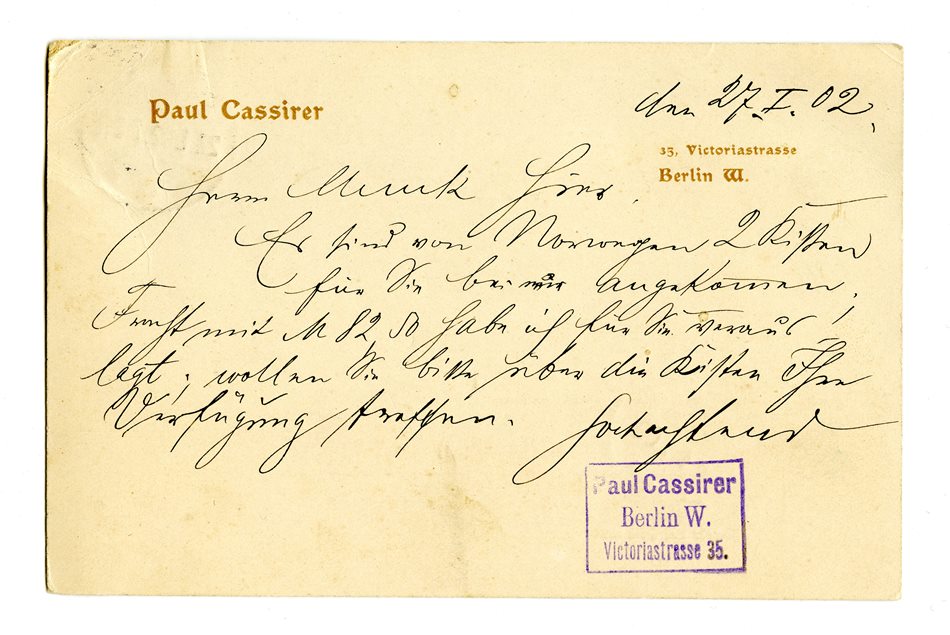 Paul Cassirer
den 27.I.02.
35, Victoriastrasse
Berlin W.
Herrn Munk Hier.
Es sind von Norwegen 2 Kisten
für Sie bei mir angekommen,
Fracht mit M 82,50 habe ich für Sie veraus,
lagt; wollen Sie bitte über die Kisten Ihre
Verfügung treffen.
Hochachtend
Paul Cassirer
Berlin W.
Victoriastrasse 35.